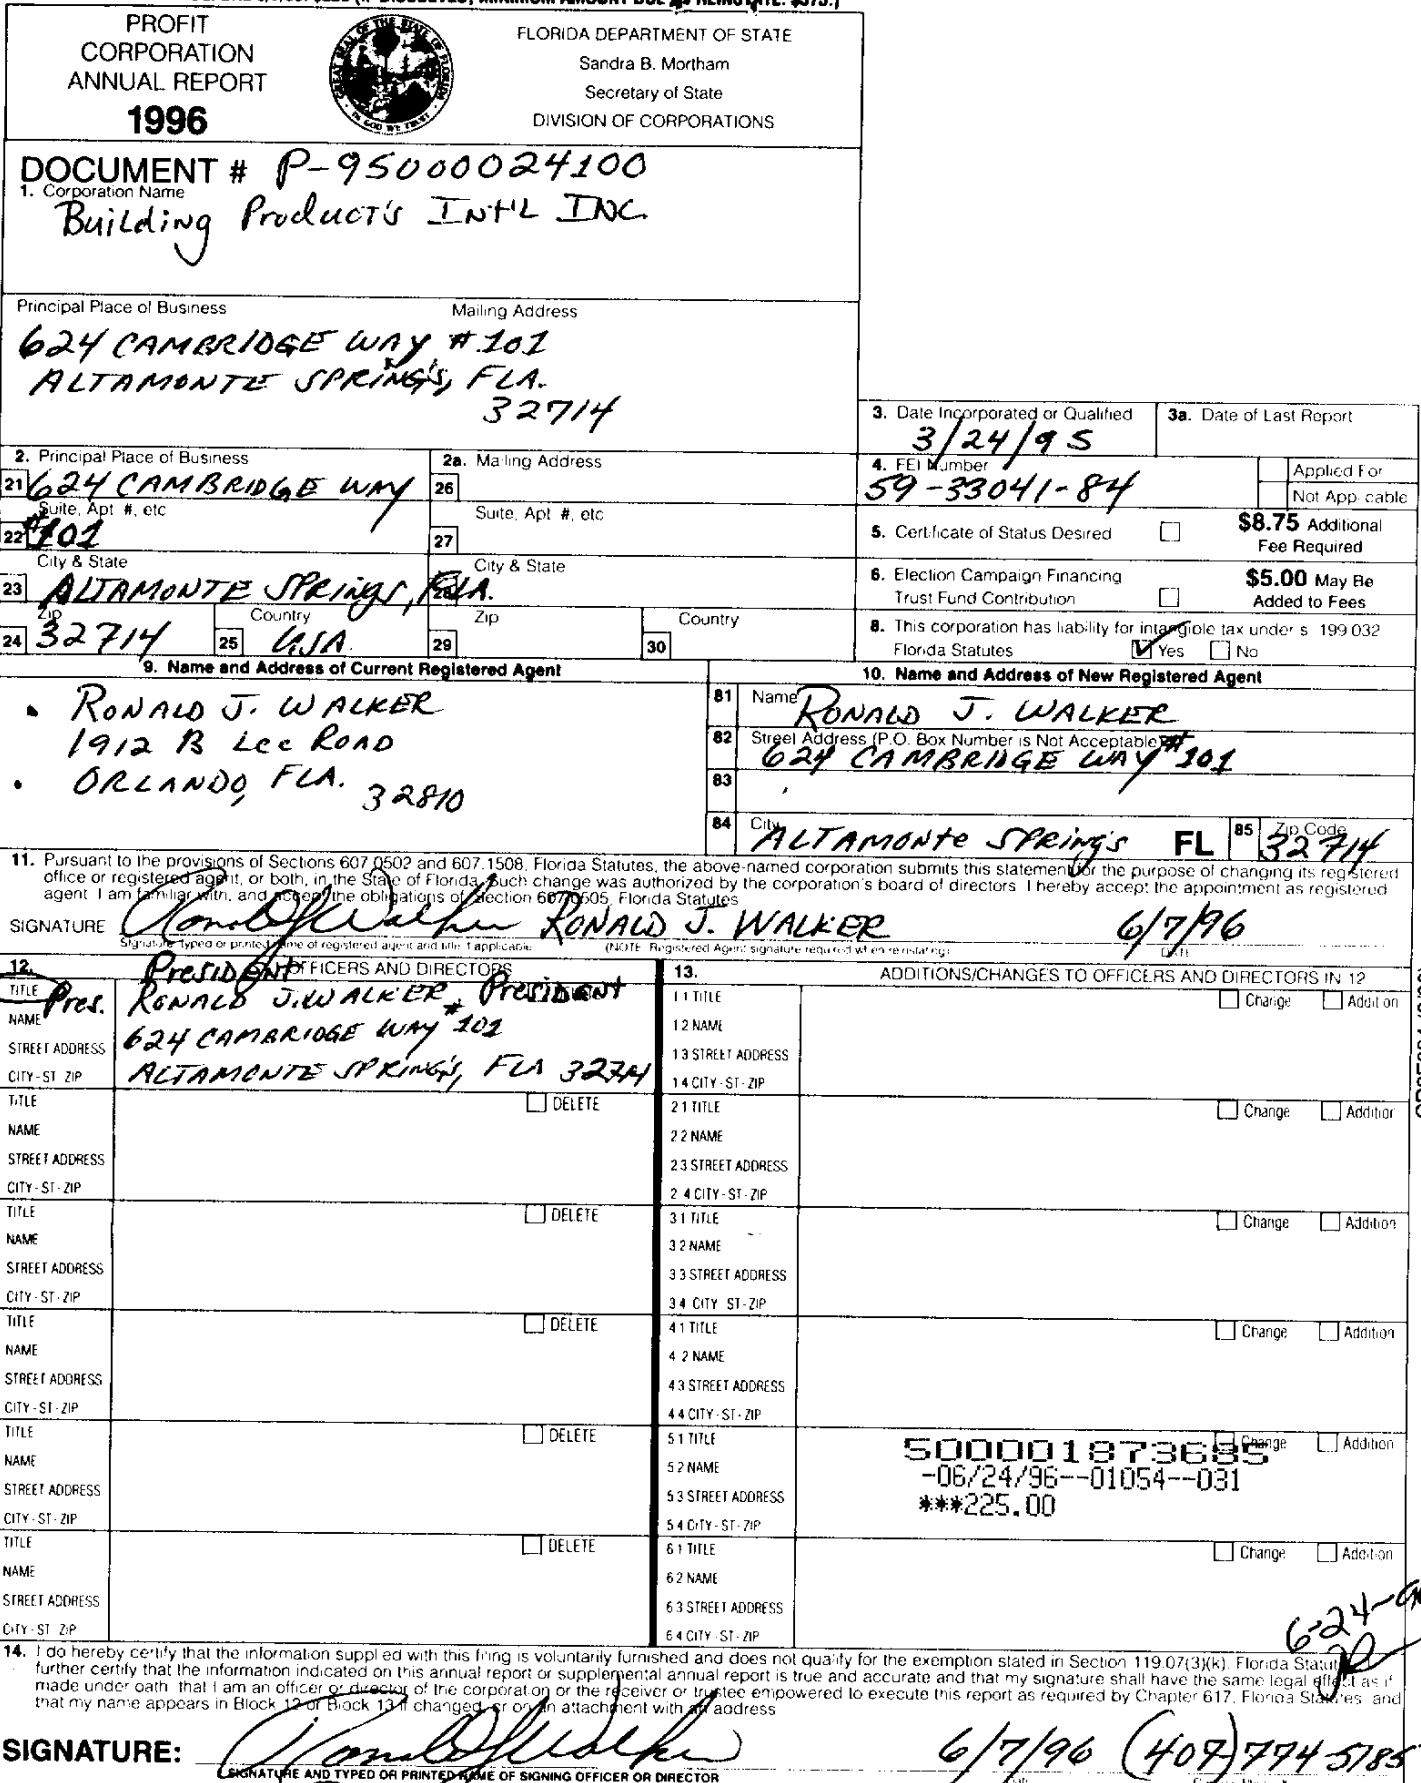 PROFIT
CORPORATION
ANNUAL REPORT
1996
FLORIDA DEPARTMENT OF STATE
Sandra B. Mortham
Secretary of State
DIVISION OF CORPORATIONS
DOCUMENT # P-95000024100
1. Corporation Name
Building Product's INT'L INC.
Principal Place of Business Mailing Address
624 CAMBRIDGE WAY #101
ALTAMONTE SPRING'S, FLA.
32714
3. Date Incorporated or Qualified
3/24/95
3a. Date of Last Report
2. Principal Place of Business
21 624 CAMBRIDGE WAY
Suite, Apt #, etc
22 #101
City & State
23 ALTAMONTE SPRINGS, FLA.
Zip Country
24 32714 25 USA
2a. Mailing Address
26
Suite, Apt #, etc
27
City & State
28
Zip Country
29 30
4. FEI Number
59-33041-84
Applied For
Not Applicable
5. Certificate of Status Desired $8.75 Additional
Fee Required
6. Election Campaign Financing
Trust Fund Contribution $5.00 May Be
Added to Fees
8. This corporation has liability for intangible tax under s 199 032
Florida Statutes Yes No
9. Name and Address of Current Registered Agent
RONALD J. WALKER
1912 B Lee ROAD
ORLANDO, FLA. 32810
10. Name and Address of New Registered Agent
81 Name RONALD J. WALKER
82 Street Address (P.O. Box Number is Not Acceptable)
624 CAMBRIDGE WAY #101
83
84 City ALTAMONTE SPRING'S FL 85 Zip Code 32714
11. Pursuant to the provisions of Sections 607.0502 and 607.1508, Florida Statutes, the above-named corporation submits this statement for the purpose of changing its registered
office or registered agent, or both, in the State of Florida. Such change was authorized by the corporation's board of directors I hereby accept the appointment as registered
agent I am familiar with, and accept the obligations of Section 607.0505, Florida Statutes
SIGNATURE Ronald J Walker RONALD J. WALKER 6/7/96
Signature typed or printed name of registered agent and title if applicable (NOTE Registered Agent signature required when reinstating) DATE
12. OFFICERS AND DIRECTORS
PRESIDENT
TITLE Pres. RONALD J. WALKER, PRESIDENT
NAME
STREET ADDRESS 624 CAMBRIDGE WAY #101
CITY-ST ZIP ALTAMONTE SPRING'S, FLA 32714
TITLE DELETE
NAME
STREET ADDRESS
CITY-ST-ZIP
TITLE DELETE
NAME
STREET ADDRESS
CITY-ST-ZIP
TITLE DELETE
NAME
STREET ADDRESS
CITY-ST-ZIP
TITLE DELETE
NAME
STREET ADDRESS
CITY-ST-ZIP
TITLE DELETE
NAME
STREET ADDRESS
CITY-ST ZIP
13. ADDITIONS/CHANGES TO OFFICERS AND DIRECTORS IN 12
1 1 TITLE Change Addition
1 2 NAME
1 3 STREET ADDRESS
1 4 CITY-ST-ZIP
2 1 TITLE Change Addition
2 2 NAME
2 3 STREET ADDRESS
2 4 CITY-ST-ZIP
3 1 TITLE Change Addition
3 2 NAME
3 3 STREET ADDRESS
3 4 CITY ST-ZIP
4 1 TITLE Change Addition
4 2 NAME
4 3 STREET ADDRESS
4 4 CITY-ST-ZIP
5 1 TITLE Change Addition
500001873685
5 2 NAME
-06/24/96--01054--031
5 3 STREET ADDRESS
***225.00
5 4 CITY-ST-ZIP
6 1 TITLE Change Addition
6 2 NAME
6 3 STREET ADDRESS
6 4 CITY-ST-ZIP
14. I do hereby certify that the information supplied with this filing is voluntarily furnished and does not qualify for the exemption stated in Section 119.07(3)(k), Florida Statutes
further certify that the information indicated on this annual report or supplemental annual report is true and accurate and that my signature shall have the same legal effect as if
made under oath that I am an officer or director of the corporation or the receiver or trustee empowered to execute this report as required by Chapter 617, Florida Statutes and
that my name appears in Block 12 or Block 13 if changed, or on an attachment with an address
SIGNATURE: Ronald J Walker 6/7/96 (407)774-5785
SIGNATURE AND TYPED OR PRINTED NAME OF SIGNING OFFICER OR DIRECTOR